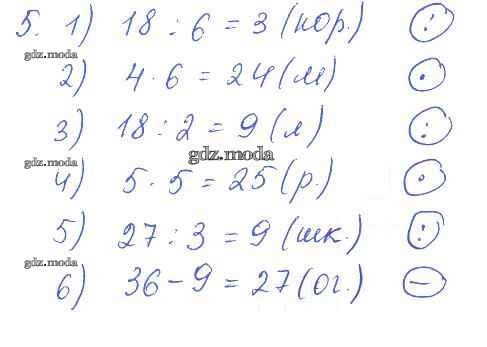 5. 1) 18 : 6 = 3 (кор.) :
gdz.moda
2) 4 · 6 = 24 (м) ·
3) 18 : 2 = 9 (л) :
gdz.moda
gdz.moda
4) 5 · 5 = 25 (р.) ·
5) 27 : 3 = 9 (шк.) :
gdz.moda
6) 36 - 9 = 27 (ог.) -